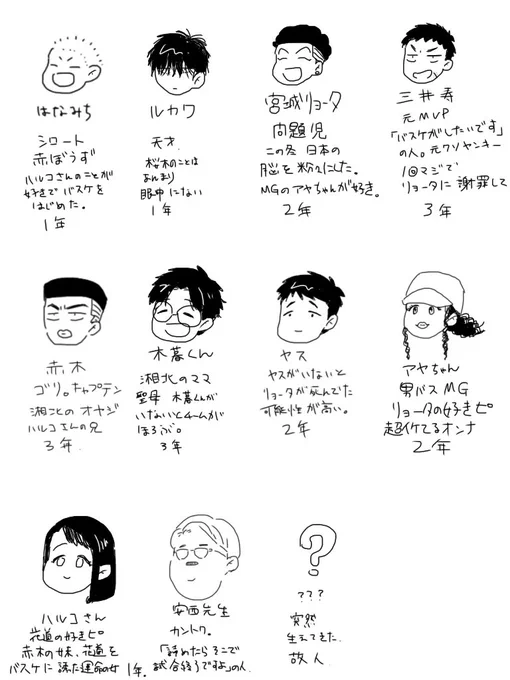 はなみち
シロート
赤ぼうず
ハルコさんのことが
好きでバスケを
はじめた。
1年
ルカワ
天才.
桜木のことは
あんまり
眼中にない
1年
宮城リョータ
問題児
この冬 日本の
脳を粉々にした。
MGのアヤちゃんが好き。
2年
三井寿
元MVP
「バスケがしたいです」
の人。元クソヤンキー
1回マジで
リョータに謝罪して
3年
赤木
ゴリ。キャプテン
湘北のオヤジ
ハルコさんの兄
3年.
木暮くん
湘北のママ
聖母 木暮くんが
いないとチームが
ほろぶ。
3年
ヤス
ヤスがいないと
リョータが死んでた
可能性が高い。
2年
アヤちゃん
男バスMG
リョータの好きピ
超イケてるオンナ
2年
ハルコさん
花道の好きピ
赤木の妹、花道を
バスケに誘た運命の女
1年.
安西先生
カントク。
「諦めたらそこで
試合終了ですよ」の人.
?
???
突然
生えてきた.
故人